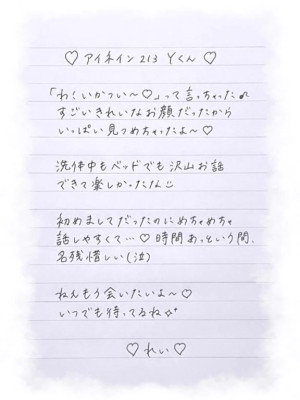 ♡ アイネイン 213 Yくん ♡
「わ！いかつい〜♡」って言っちゃった♪
すごいきれいなお顔だったから
いっぱい見つめちゃったよ〜♡
洗体中もベッドでも沢山お話
できて楽しかったな☺
初めましてだったのにめちゃめちゃ
話しやすくて…♡ 時間あっという間、
名残惜しい(泣)
ねえもう会いたいよ〜♡
いつでも待ってるね✨
♡ れい ♡